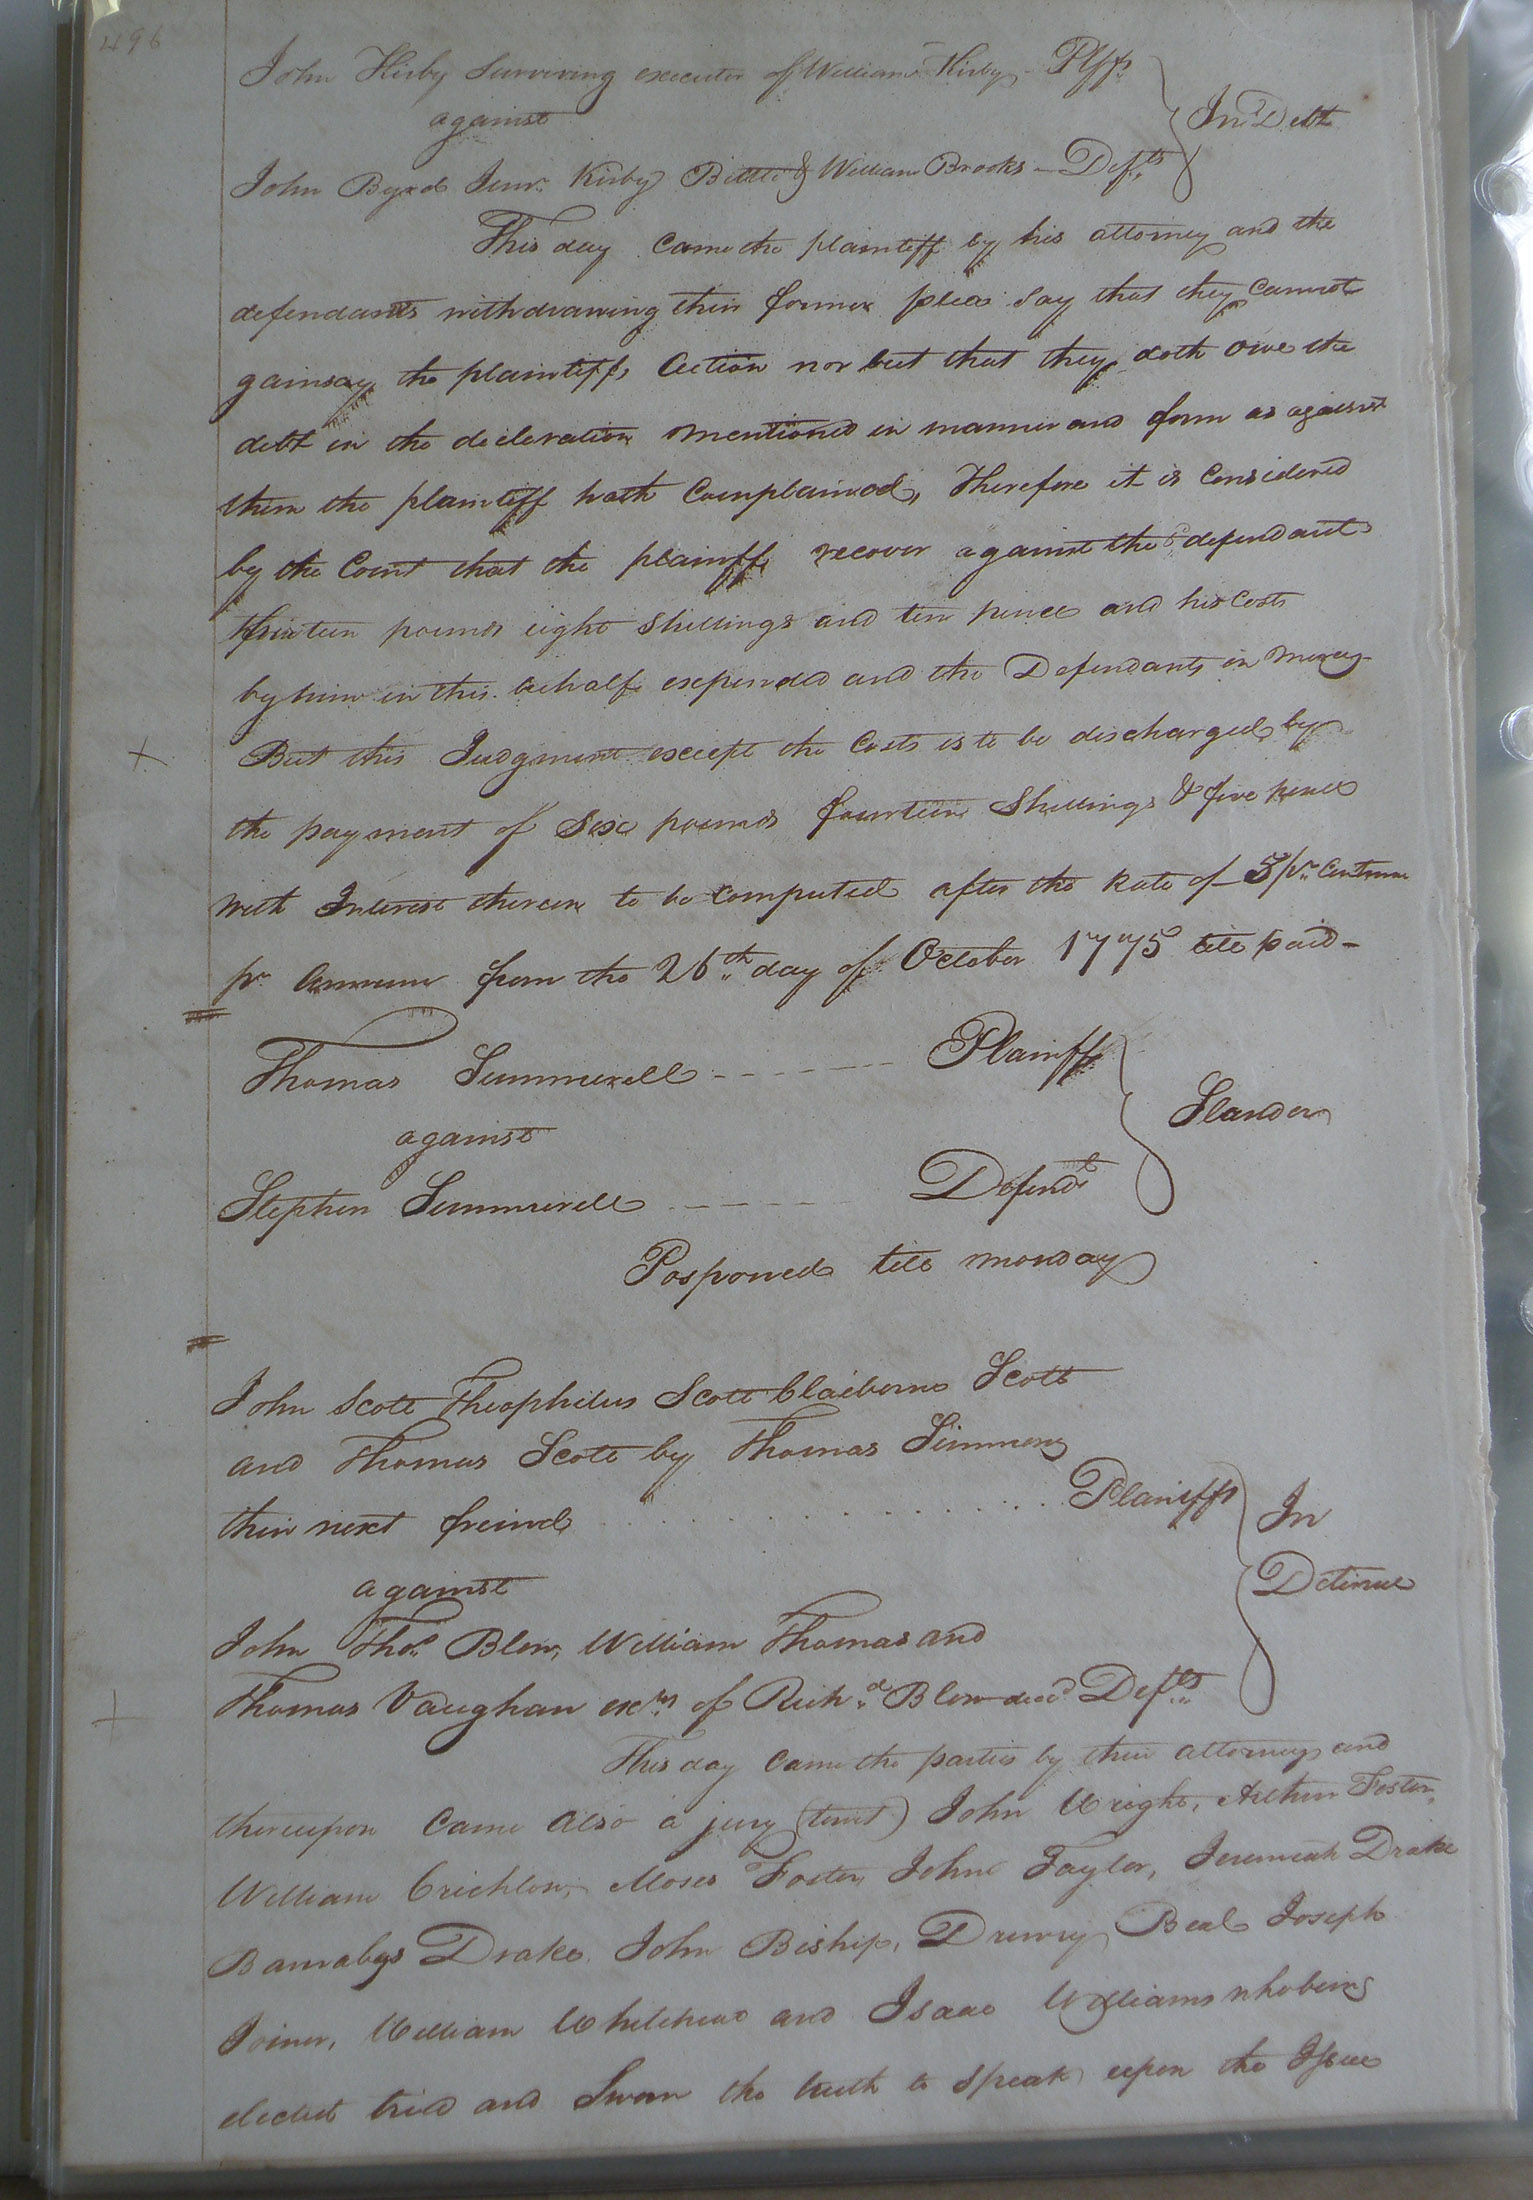 496
John Kirby Surviving executor of William Kirby - Plff
against
In Debt
John Byrd Junr. Kirby Bittle & William Brooks - Defts
This day came the plaintiff by his attorney and the
defendants withdrawing their former plea say that they cannot
gainsay the plaintiffs action nor but that they doth owe the
debt in the declaration mentioned in manner and form as against
them the plaintiff hath complained, Therefore it is considered
by the Court that the plaintiff recover against the defendants
thirteen pounds eight shillings and ten pence and his costs
by him in this behalf expended and the Defendants in mercy
But this Judgment except the costs is to be discharged by
the payment of Six pounds fourteen Shillings & five pence
with Interest thereon to be computed after the Rate of 5 pr. Centum
pr annum from the 26th day of October 1775 till paid -
Thomas Summerell - - - - - - - Plaintiff
against
Slander
Stephen Summerell - - - - - Defendt
Posponed till monday
John Scott Theophilus Scott Claiborne Scott
and Thomas Scott by Thomas Simmons
their next freind . . . . . . . . . . . Plaintiffs
In
Detinue
against
John Thos. Blow, William Thomas and
Thomas Vaughan exrs. of Richd. Blow decd Defts
This day came the parties by their attorneys and
thereupon came also a jury (towit) John Wright, Arthur Foster,
William Crichlow, Moses Foster, John Taylor, Jeremiah Drake
Barnabas Drake, John Biship, Drewry Beal Joseph
Joiner, William Whitehead and Isaac Williams who being
elected tried and Sworn the truth to Speak upon the Issue